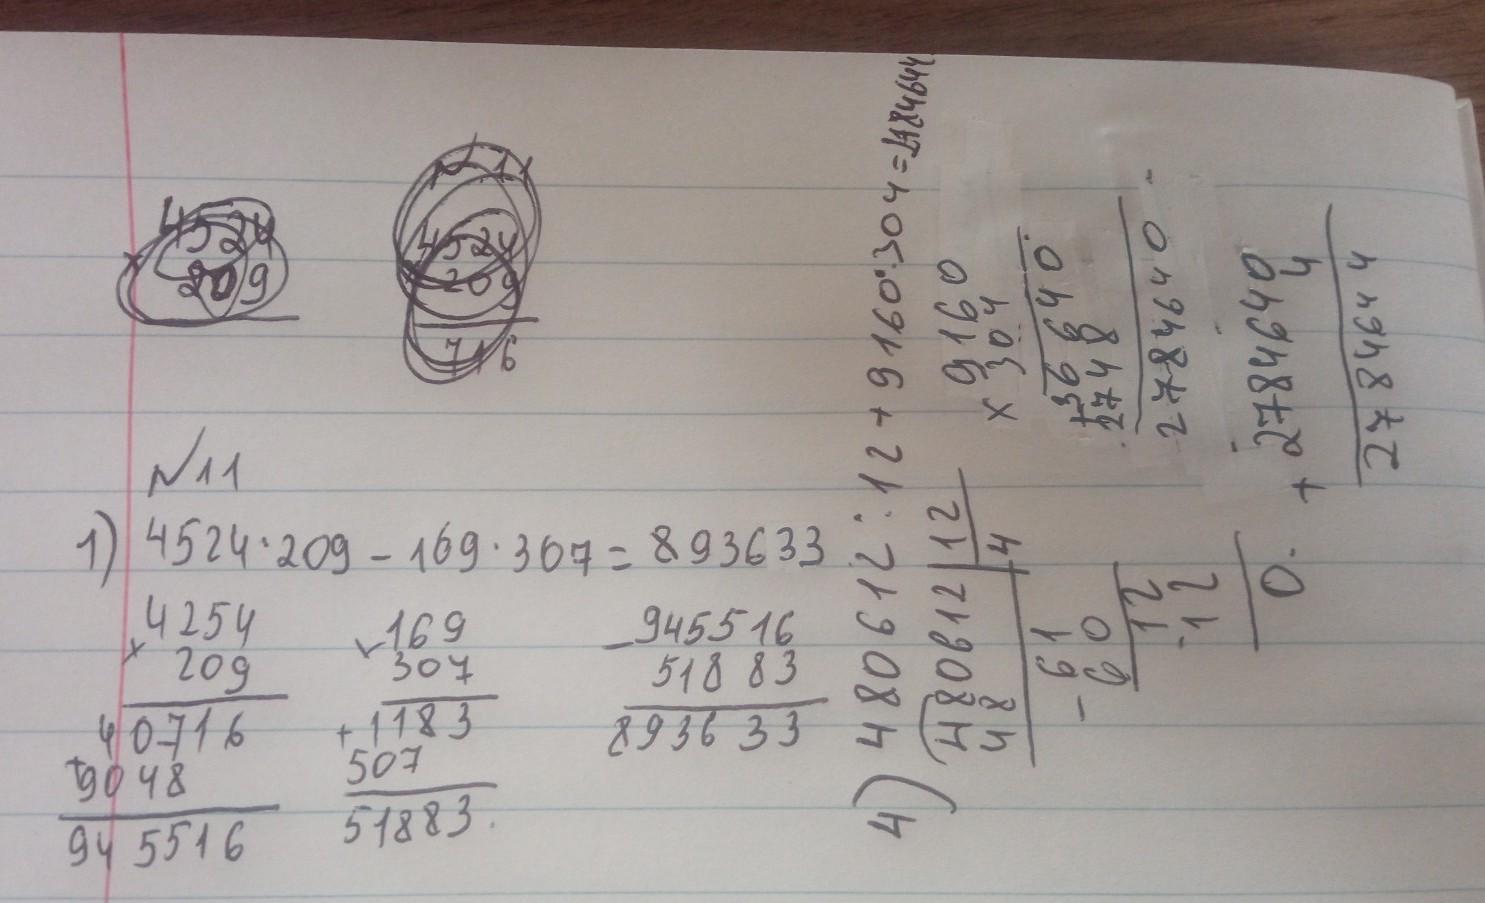 4524
× 209
N11
4524
209
716
N11
1) 4524·209 - 169·307 = 893633
4254
× 209
40716
+ 9048
945516
169
× 307
+ 1183
507
51883.
- 945516
51883
893633
4) 480612 : 12 + 9160·304 =
480612 | 12
48
4
- 61
60
12
- 12
0.
9160
× 304
+ 36640
2748
2784640
+ 2784640
4
2784644